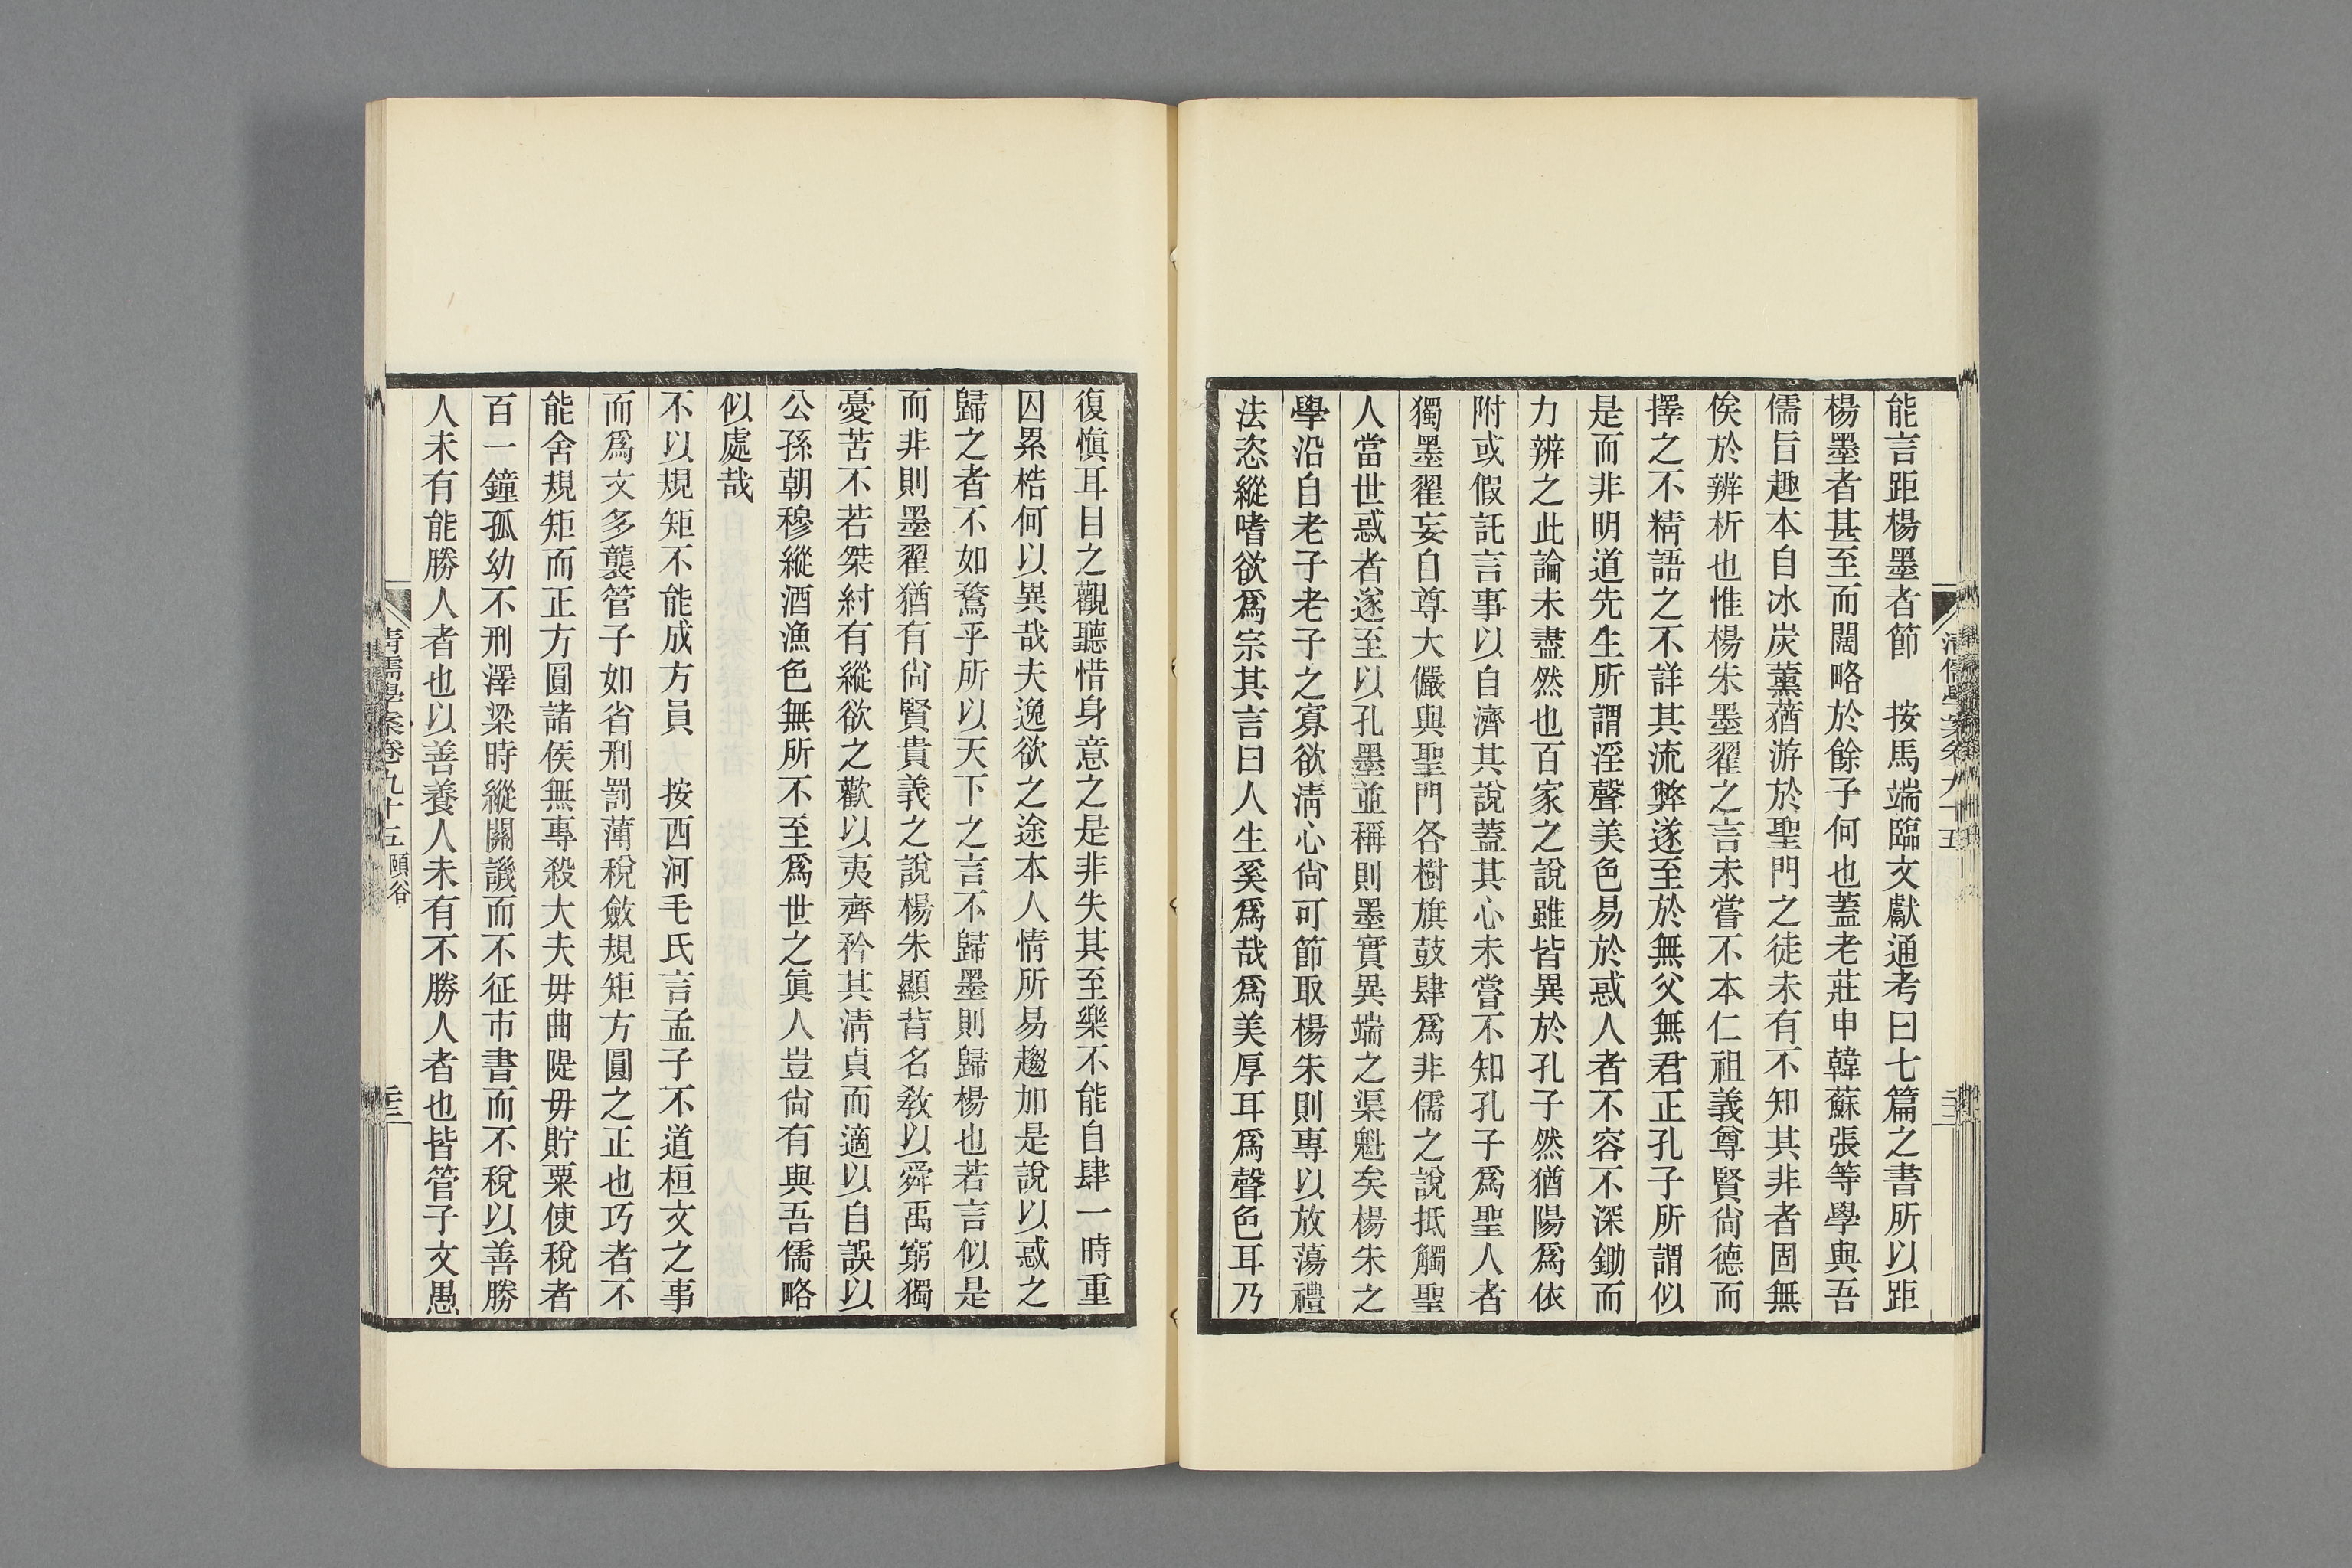 能言距楊墨者節　按馬端臨文獻通考曰七篇之書所以距
楊墨者甚至而闊略於餘子何也蓋老莊申韓蘇張等學與吾
儒旨趣本自冰炭薰蕕游於聖門之徒未有不知其非者固無
俟於辨析也惟楊朱墨翟之言未嘗不本仁祖義尊賢尙德而
擇之不精語之不詳其流弊遂至於無父無君正孔子所謂似
是而非明道先生所謂淫聲美色易於惑人者不容不深鋤而
力辨之此論未盡然也百家之說雖皆異於孔子然猶陽爲依
附或假託言事以自濟其說蓋其心未嘗不知孔子爲聖人者
獨墨翟妄自尊大儼與聖門各樹旗鼓肆爲非儒之說抵觸聖
人當世惑者遂至以孔墨並稱則墨實異端之渠魁矣楊朱之
學沿自老子老子之寡欲淸心尙可節取楊朱則專以放蕩禮
法恣縱嗜欲爲宗其言曰人生奚爲哉爲美厚耳爲聲色耳乃
復愼耳目之觀聽惜身意之是非失其至樂不能自肆一時重
囚累梏何以異哉夫逸欲之途本人情所易趨加是說以惑之
歸之者不如鶩乎所以天下之言不歸墨則歸楊也若言似是
而非則墨翟猶有尙賢貴義之說楊朱顯背名敎以舜禹窮獨
憂苦不若桀紂有縱欲之歡以夷齊矜其淸貞而適以自誤以
公孫朝穆縱酒漁色無所不至爲世之眞人豈尙有與吾儒略
似處哉
不以規矩不能成方員　按西河毛氏言孟子不道桓文之事
而爲文多襲管子如省刑罰薄稅斂規矩方圓之正也巧者不
能舍規矩而正方圓諸侯無專殺大夫毋曲隄毋貯粟使稅者
百一鐘孤幼不刑澤梁時縱關譏而不征市書而不稅以善勝
人未有能勝人者也以善養人未有不勝人者也皆管子文愚
清儒學案卷九十五 頤谷